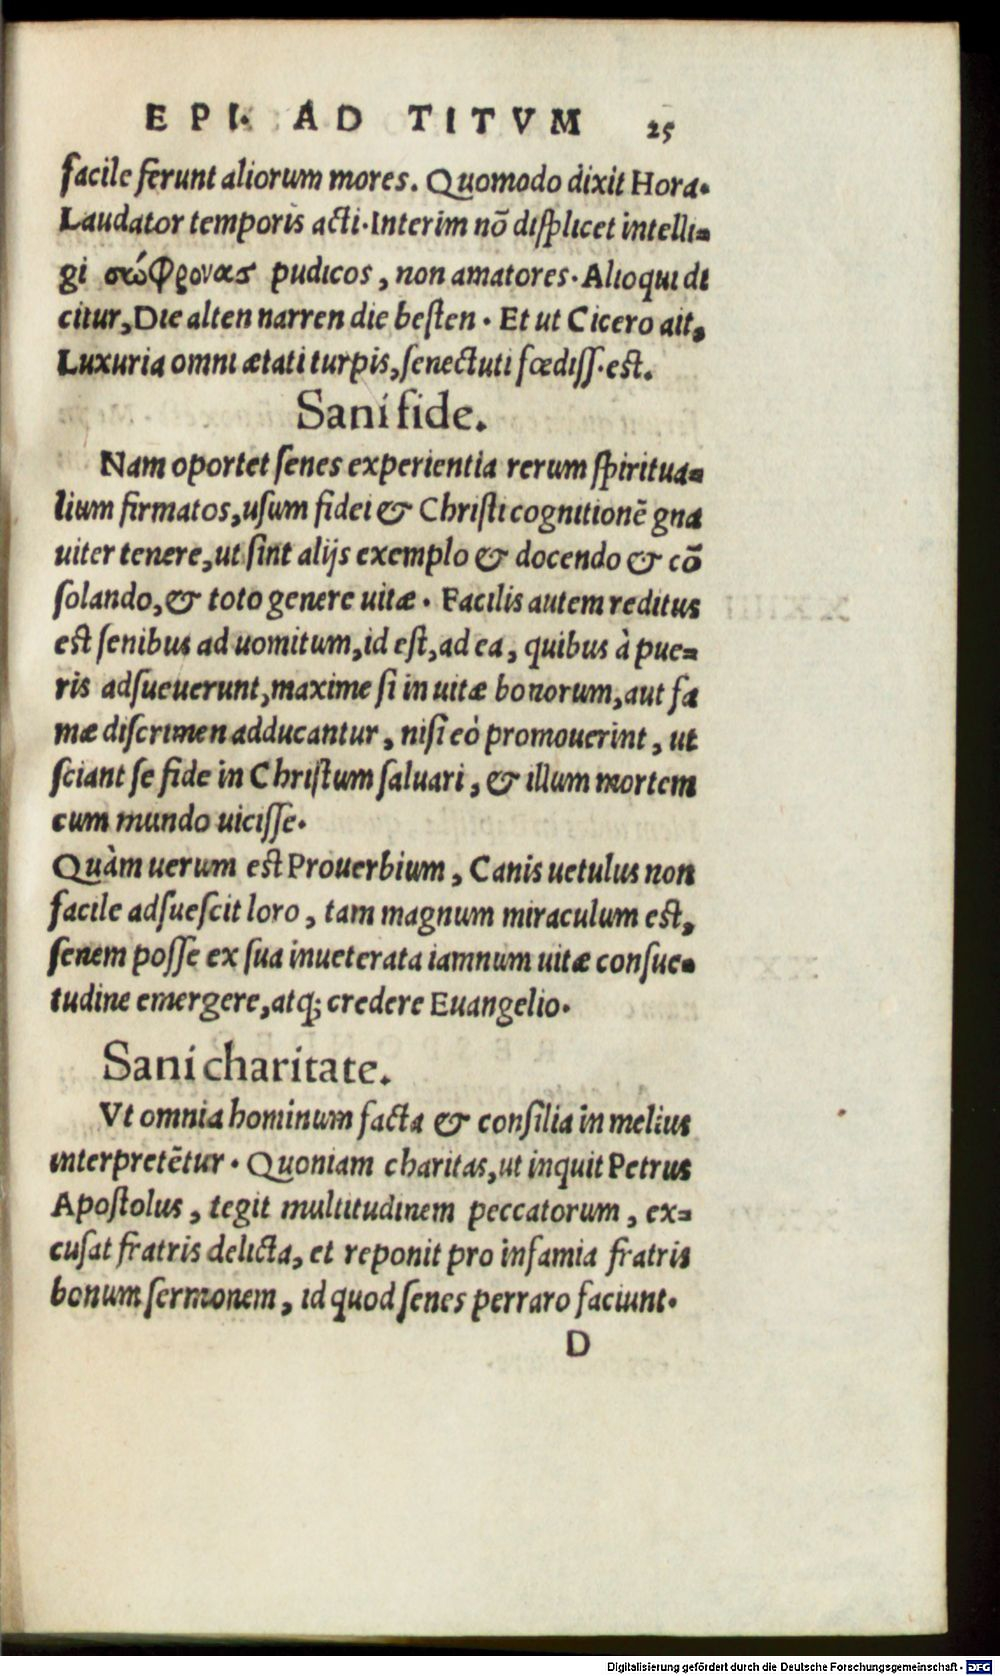 EPI. AD TITVM 25
facile ferunt aliorum mores. Quomodo dixit Hora-
Laudator temporis acti. Interim nō displicet intelli-
gi σώφρονας pudicos, non amatores. Alioqui di
citur, Die alten narren die besten. Et ut Cicero ait,
Luxuria omni ætati turpis, senectuti fœdiss. est.
Sani fide.
Nam oportet senes experientia rerum spiritua-
lium firmatos, usum fidei & Christi cognitionē gna
uiter tenere, ut sint alijs exemplo & docendo & cō
solando, & toto genere uitæ. Facilis autem reditus
est senibus ad uomitum, id est, ad ea, quibus à pue-
ris adsueuerunt, maxime si in uitæ bonorum, aut fa
mæ discrimen adducantur, nisi eò promouerint, ut
sciant se fide in Christum saluari, & illum mortem
cum mundo uicisse.
Quàm uerum est Prouerbium, Canis uetulus non
facile adsuescit loro, tam magnum miraculum est,
senem posse ex sua inueterata iamnum uitæ consue-
tudine emergere, atq; credere Euangelio.
Sani charitate.
Vt omnia hominum facta & consilia in melius
interpretētur. Quoniam charitas, ut inquit Petrus
Apostolus, tegit multitudinem peccatorum, ex-
cusat fratris delicta, et reponit pro infamia fratris
bonum sermonem, id quod senes perraro faciunt.
D
Digitalisierung gefördert durch die Deutsche Forschungsgemeinschaft - DFG